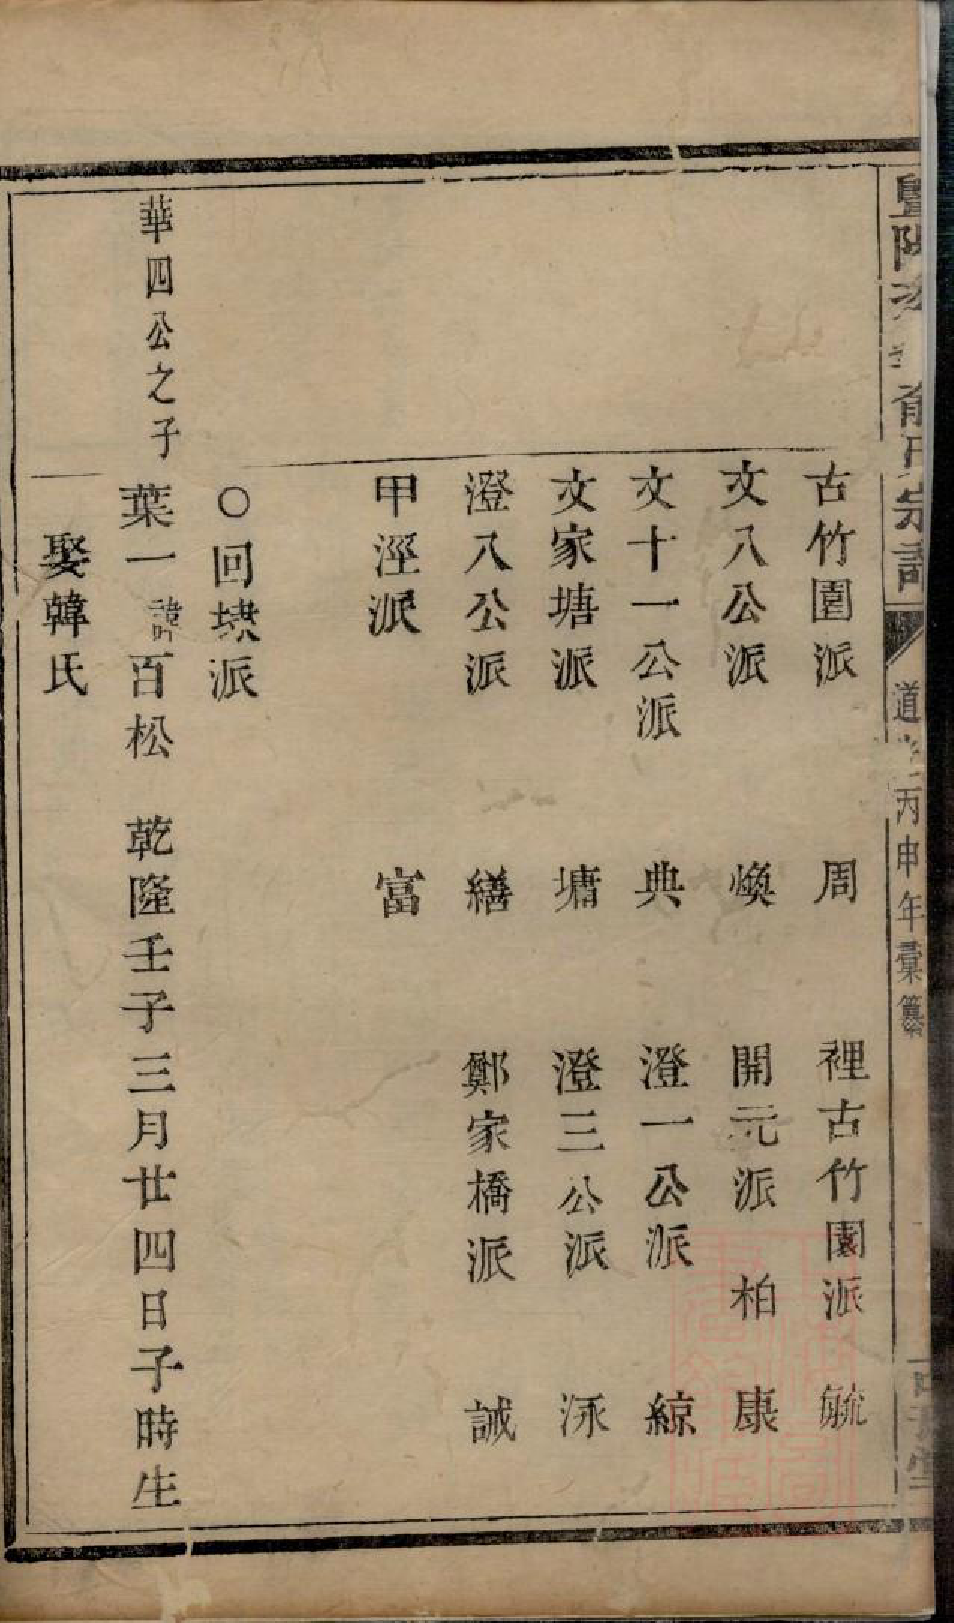 暨陽 俞氏宗譜
道光丙申年彙纂
古竹園派 周 裡古竹園派 毓
文八公派 煥 開元派 柏 康
文十一公派 典 澄一公派 綜
文家塘派 墉 澄三公派
澄八公派 繕 鄭家橋派 誠
甲涇派 富
〇回塨派
華四公之子
葉一諱百松 乾隆壬子三月廿四日子時生
娶韓氏